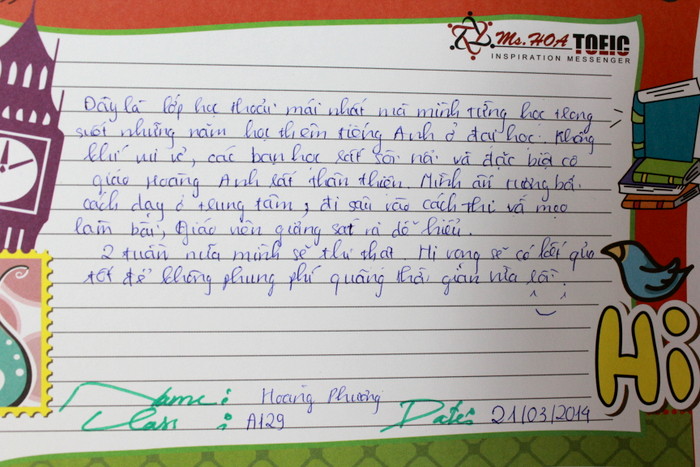 Ms. HOA TOEIC
INSPIRATION MESSENGER
Đây là lớp học thoải mái nhất mà mình từng học trong
suốt những năm học thêm tiếng Anh ở đại học. Không
khí vui vẻ, các bạn học rất sôi nổi và đặc biệt cô
giáo Hoàng Anh rất thân thiện. Mình ấn tượng bởi
cách dạy ở trung tâm, đi sâu vào cách thi và mẹo
làm bài, giáo viên giảng sát và dễ hiểu.
2 tuần nữa mình sẽ thi thật. Hi vọng sẽ có kết quả
tốt để không phung phí quãng thời gian vừa rồi.
Hi
Name: Hoàng Phương
Class: A129 Date: 21/03/2014